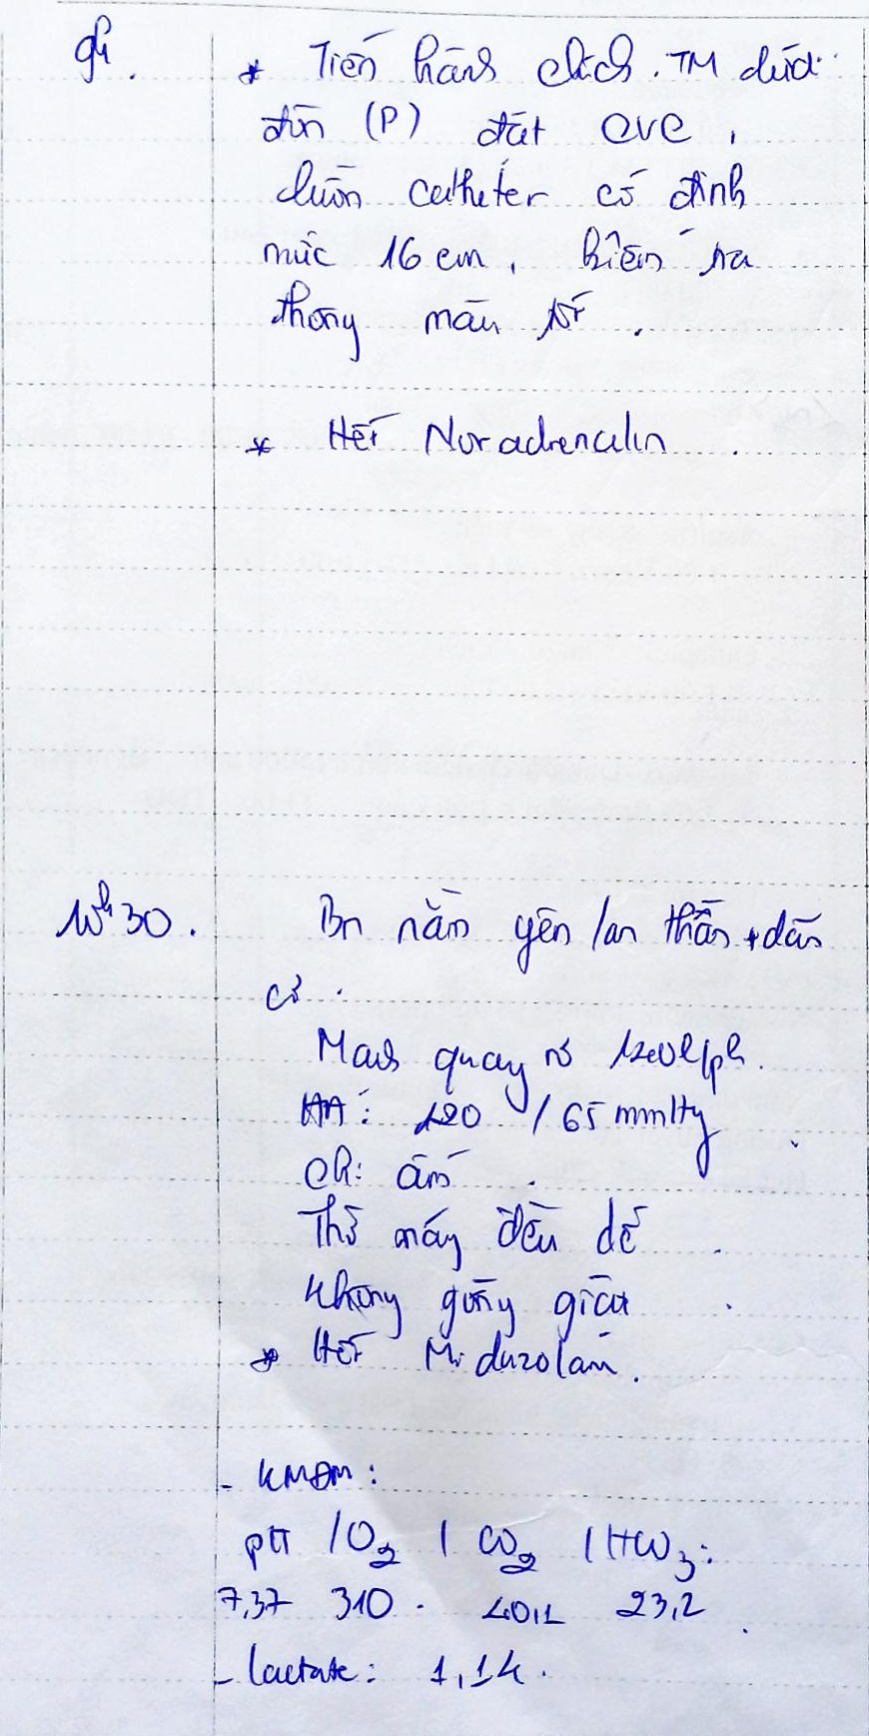 9h.
* Tiến hành chích TM dưới
đòn (P) đặt CVC,
luồn catheter cố định
mức 16 cm, kiểm tra
thông máu tốt.
* Hết Noradrenalin.
10h30.
Bn nằm yên / an thần + dãn
cơ.
Mạch quay rõ 120l/ph.
HA: 120 / 65 mmHg
Chi ấm.
Thở máy đều dễ.
Không gồng giật.
* Hết Midazolam.
- KMĐM:
pH / O2 / CO2 / HCO3:
7,37 310 . 40,1 23,2
- lactate: 1,14.